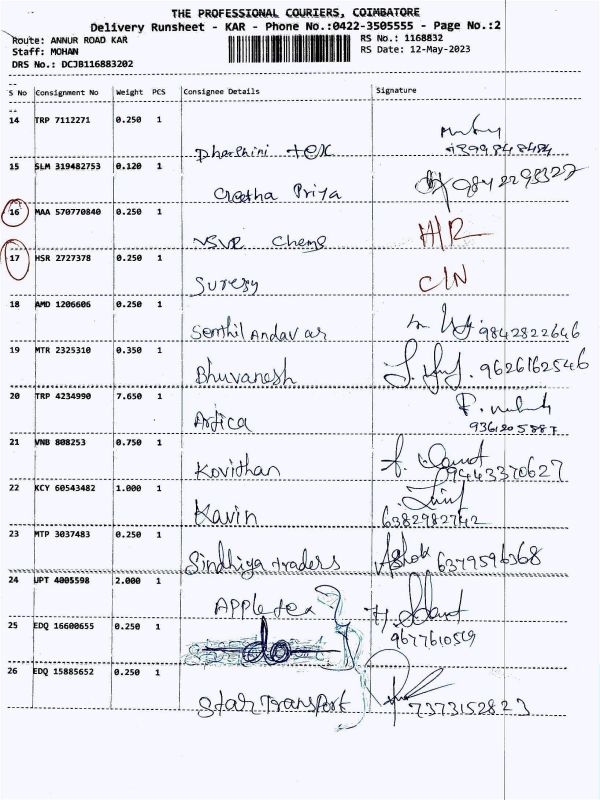 THE PROFESSIONAL COURIERS, COIMBATORE
Delivery Runsheet - KAR - Phone No.:0422-3505555 - Page No.:2
Route: ANNUR ROAD KAR
RS No.: 1168832
Staff: MOHAN
RS Date: 12-May-2023
DRS No.: DCJB116883202
S No Consignment No Weight PCS Consignee Details Signature
14 TRP 7112271 0.250 1
Dharshini tex
15 SLM 319482753 0.120 1
Creatha Priya 9842298322
16 MAA 570770840 0.250 1
NSVR Chems H/R
17 HSR 2727378 0.250 1
Suresh C/N
18 AMD 1206606 0.250 1
Senthil Andavar 9842822646
19 MTR 2325310 0.350 1
Bhuvanesh 9626162546
20 TRP 4234990 7.650 1
Artica
9361205887
21 VNB 808253 0.750 1
Kovithan 09443370627
22 KCY 60543482 1.000 1
Kavin 6382982742
23 MTP 3037483 0.250 1
Sindhiya traders Ashok 6379596368
24 UPT 4005598 2.000 1
APPle tex
25 EDQ 16600655 0.250 1
do 9677610569
26 EDQ 15885652 0.250 1
Star Transport 7373152823